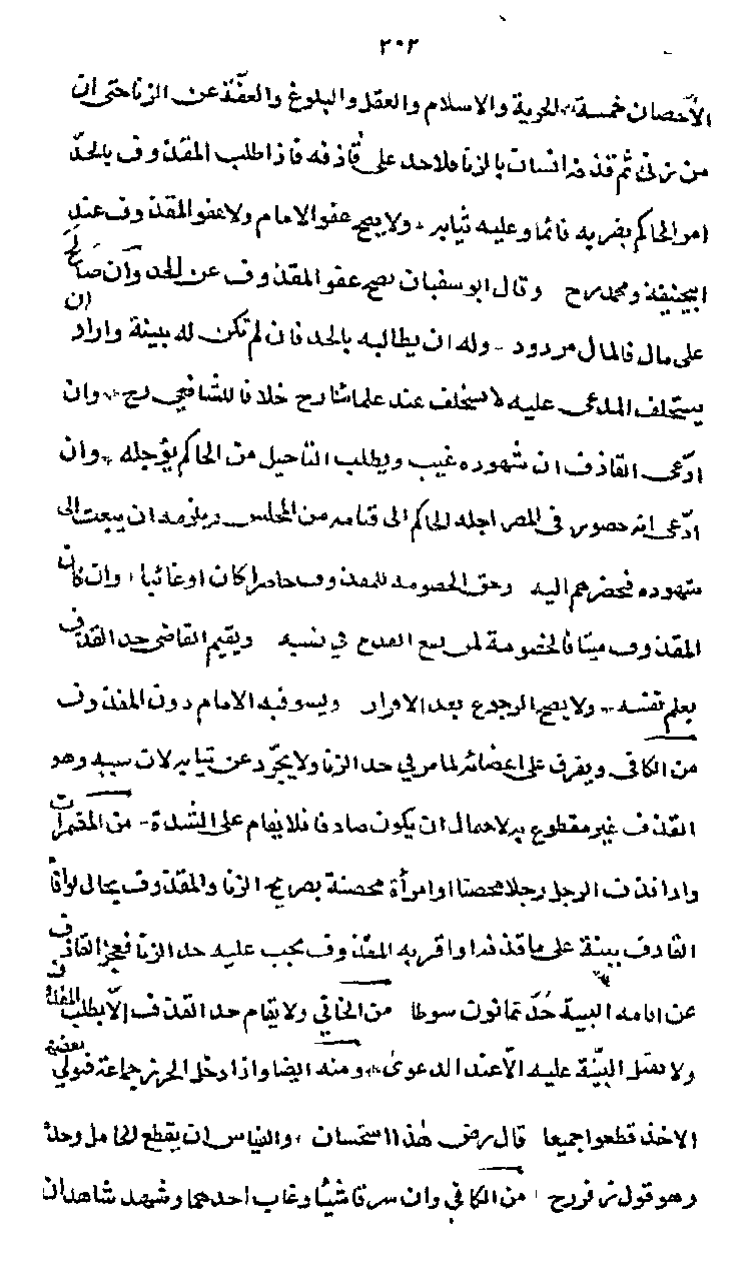 ٢٠٢
الأحصان خمسة الحرية والاسلام والعقل والبلوغ والعفة عن الزنا حتى ان
من زنى ثم قذفه انسان بالزنا فلا حد على قاذفه فاذا طلب المقذوف بالحدّ
امر الحاكم بضربه قائما وعليه ثيابه ولا يصح عفو الامام ولا عفو المقذوف عند
ابيحنيفة ومحمد رح وقال ابو سفيان يصح عفو المقذوف عن الحد وان صالح
على مال فالمال مردود وله ان يطالبه بالحد فان لم تكن له بينة واراد ان
يستحلف المدعى عليه لا يستحلف عند علمائنا رح خلافا للشافعي رح وان
ادّعى القاذف ان شهوده غيب ويطلب التاجيل من الحاكم يؤجله وان
ادّعى انهم حضور في المصر اجله الحاكم الى قيامه من المجلس ويلزمه ان يبعث الى
شهوده فيحضرهم اليه وحق الخصومه للمقذوف حاضرا كان او غائبا وان كان
المقذوف ميتا فالخصومة لمن يقع القدح في نسبه ويقيم القاضى حد القذف
بعلم نفسه ولا يصح الرجوع بعد الاقرار ويسوقبه الامام دون المقذوف
من الكافى ويفرق على اعضائه لما مر في حد الزنا ولا يجرّد عن ثيابه لان سببه وهو
القذف غير مقطوع به لاحتمال ان يكون صادقا فلا يقام على الشدة من المضمرات
واذا قذف الرجل رجلا محصنا او امرأة محصنة بصريح الزنا والمقذوف بحال لو اقام
القاذف بينة على ما قذفه او اقر به المقذوف يجب عليه حد الزنا فعجز القاذف
عن اقامه البينة حُدَّ ثمانون سوطا من الخافي ولا يقام حد القذف الّا بطلب المقذوف
ولا تقبل البيّنة عليه الّا عند الدعوى ومنه ايضا واذا دخل الحرز جماعة فولي بعضهم
الاخذ قطعوا جميعا قال رض هذا استحسان والقياس ان يقطع الحامل وحده
وهو قول زفر رح من الكافي وان سرقا شيئا وغاب احدهما وشهد شاهدان